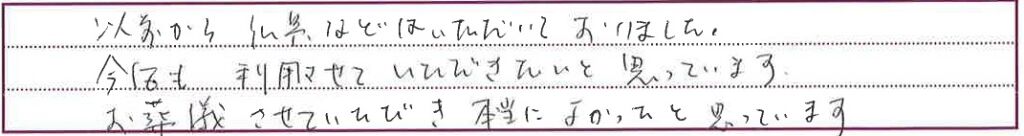 以前から 仏具などはいただいておりました。
今回も 利用させて いただきたいと 思っています.
お葬儀 させていただき 本当に よかったと 思っています